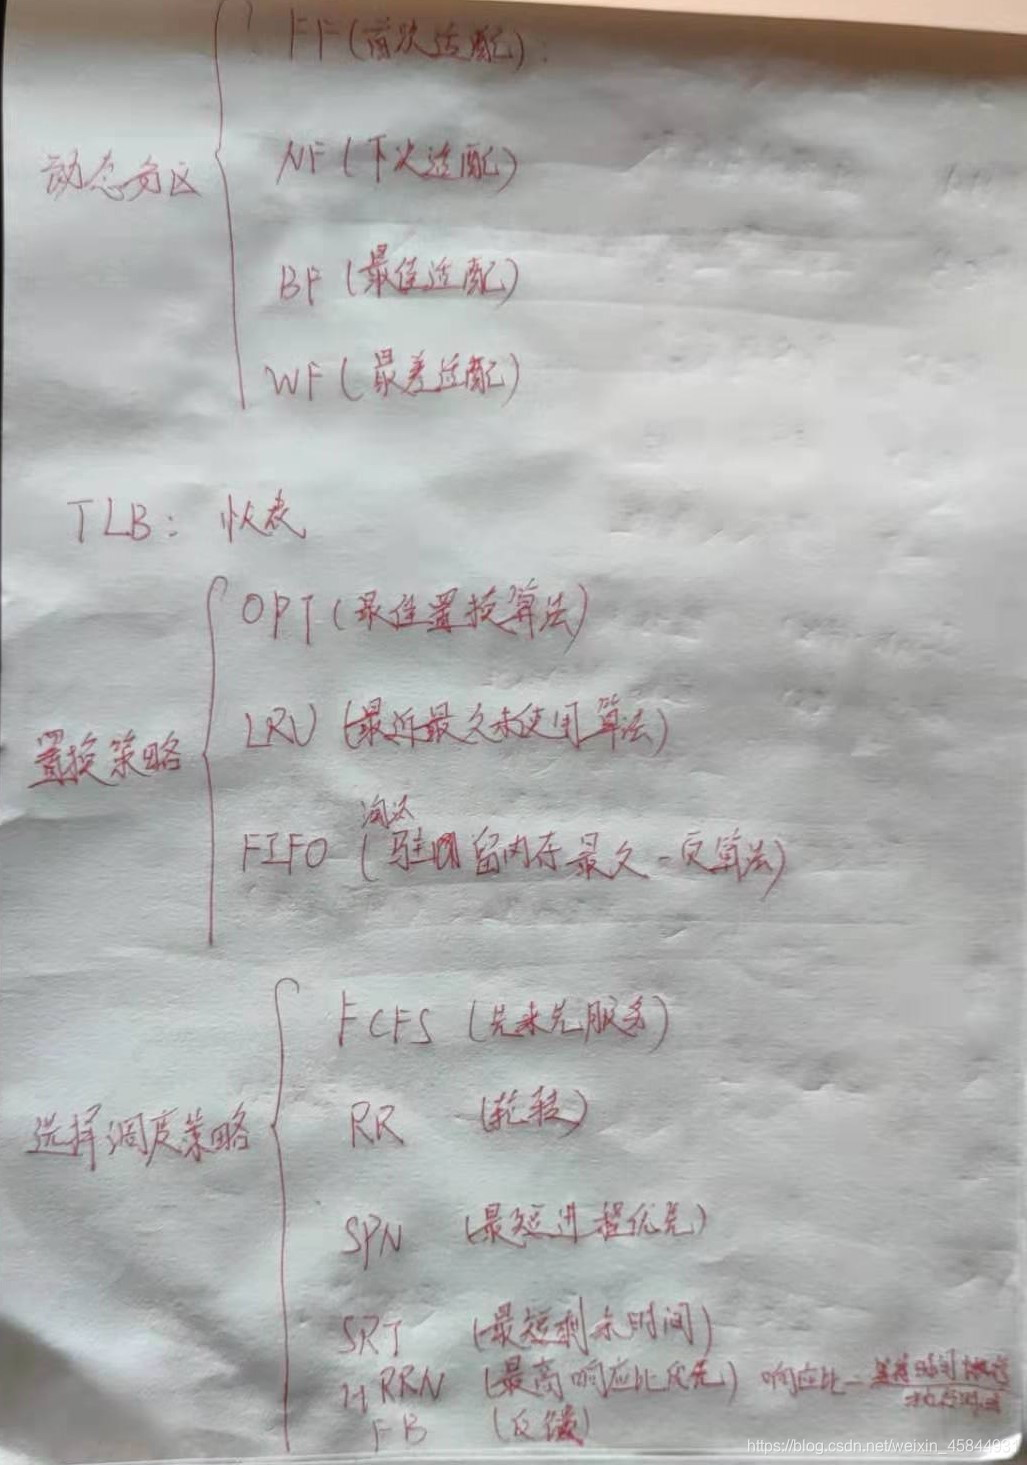 FF(首次适配):
NF(下次适配)
动态分区
BF(最佳适配)
WF(最差适配)
TLB: 快表
OPT(最佳置换算法)
LRU(最近最久未使用算法)
置换策略
淘汰
FIFO(驻留内存最久一页算法)
FCFS(先来先服务)
RR(轮转)
选择调度策略
SPN(最短进程优先)
SRT(最短剩余时间)
HRRN(最高响应比优先) 响应比=
FB(反馈)
https://blog.csdn.net/weixin_4584493